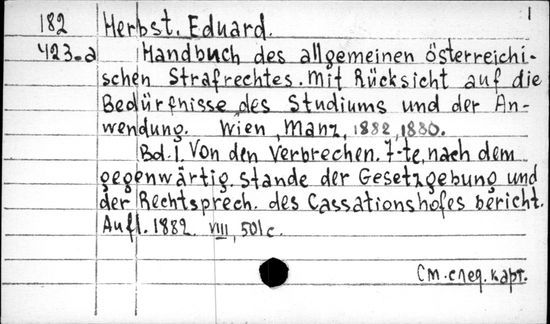 1
182 Herbst. Eduard.
423-a Handbuch des allgemeinen österreichi-
schen Strafrechtes. Mit Rücksicht auf die
Bedürfnisse des Studiums und der An-
wendung. Wien, Manz, 1882, 1880.
Bd. I. Von den Verbrechen. 7-te, nach dem
gegenwärtig. Stande der Gesetzgebung und
der Rechtsprech. des Cassationshofes bericht.
Aufl. 1882. VIII, 501 c.
См. след. карт.